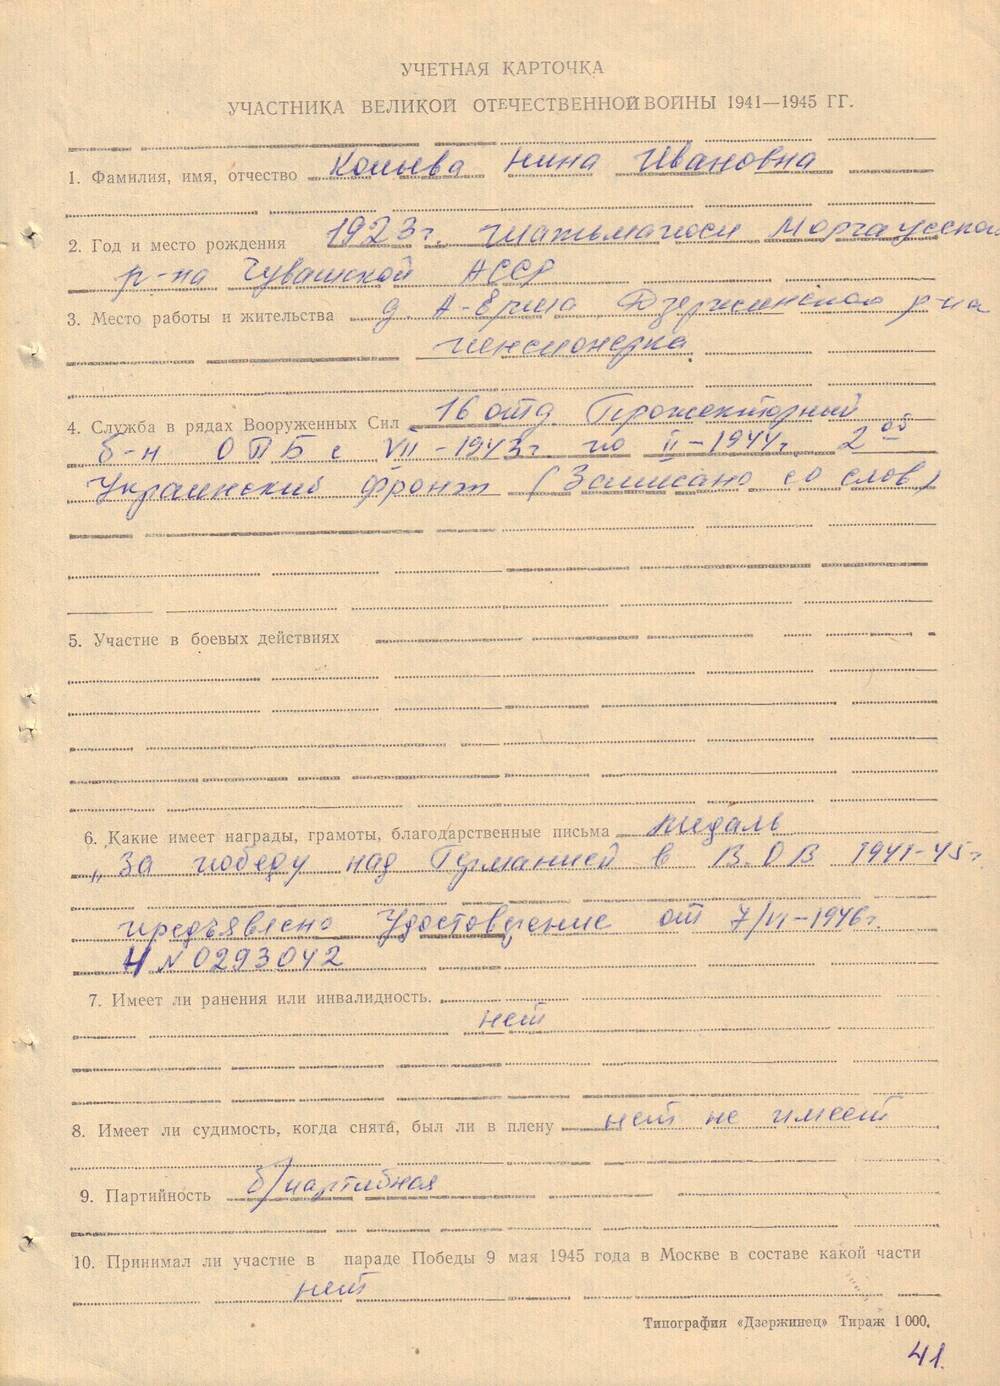 УЧЕТНАЯ КАРТОЧКА
УЧАСТНИКА ВЕЛИКОЙ ОТЕЧЕСТВЕННОЙ ВОЙНЫ 1941—1945 ГГ.
1. Фамилия, имя, отчество Копыева Нина Ивановна
2. Год и место рождения 1923 г. Моргаусского
р-на Чувашской АССР
3. Место работы и жительства д. А-Ерша Дзержинского р-на
пенсионерка
4. Служба в рядах Вооруженных Сил 16 отд. Прожекторный
б-н ОПБ с VII-1943 г. по II-1944 г. 2ой
Украинский фронт (Записано со слов)
5. Участие в боевых действиях
6. Какие имеет награды, грамоты, благодарственные письма медаль
„За победу над Германией в В.О.В 1941-45 г
предъявлено Удостоверение от 7/VI-1946 г.
Ч №0293042
7. Имеет ли ранения или инвалидность.
нет
8. Имеет ли судимость, когда снята, был ли в плену нет не имеет
9. Партийность б/партибная
10. Принимал ли участие в параде Победы 9 мая 1945 года в Москве в составе какой части
нет
Типография «Дзержинец» Тираж 1 000.
41.